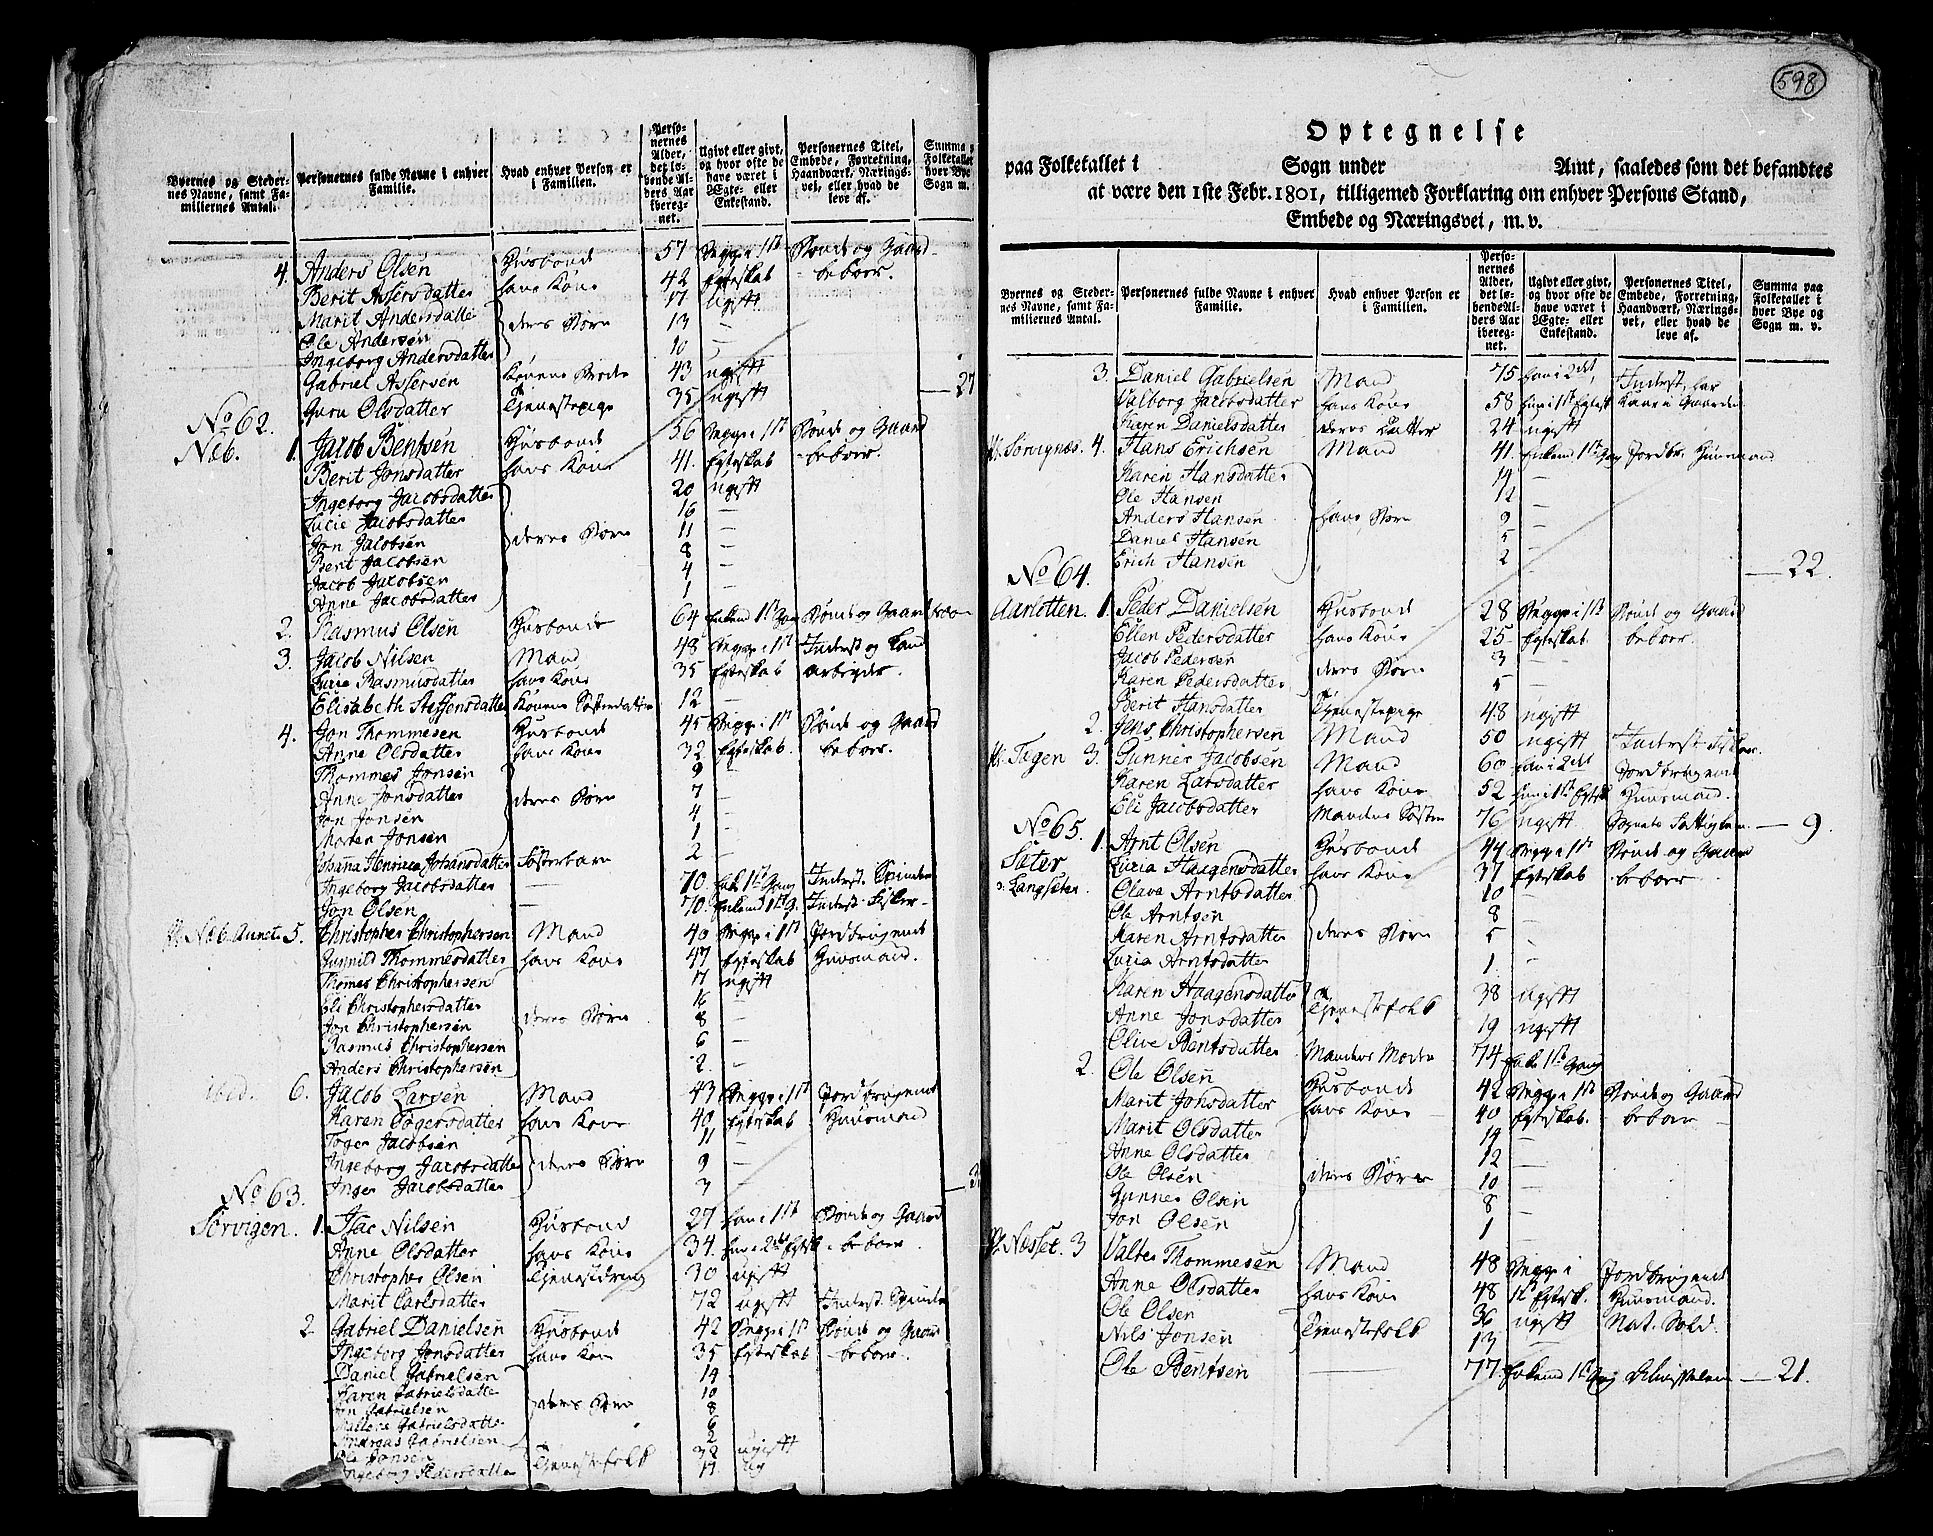 Byernes og Steder-
nes Navne, samt Fa-
miliernes Antal.
Personernes fulde Navne i enhver
Familie.
Hvad enhver Person er
i Familien.
Perso-
nernes
Alder,
det lø-
bende Al-
ders Aar
iberegnet.
Ugivt eller givt,
og hvor ofte de
have været i
Ægte- eller
Enkestand.
Personernes Titel,
Embede, Forretning,
Haandværk, Nærings-
vei, eller hvad de
leve af.
Summa p
Folketallet
hver Bye
Sogn m.
4. Anders Olsen Husbonde 57 Begge i 1ste Bonde og Gaard-
Berit Assersdatter hans Kone 42 Egteskab beboer.
Marit Andersdatter 17 ugift
Ole Andersen deres Børn 13 —
Ingeborg Andersdatter 10 —
Gabriel Assersen Konens Broder 43 ugift
Guru Olsdatter Tienestepige 35 ugift — 27
No 62.
Neb. 1. Jacob Bentsen Husbonde 56 Begge i 1ste Bonde og Gaard
Berit Jonsdatter hans Kone 41. Egteskab beboer.
Ingeborg Jacobsdatter 20 ugift
Lucie Jacobsdatter 16 —
Jon Jacobsen deres Børn 11 —
Bent Jacobsen 8 —
Jacob Jacobsen 4 —
Anne Jacobsdatter 1 —
2. Rasmus Olsen Husbonde 64 Enkem 1ste Gang Bonde og Gaardbeboer
3. Jacob Nilsen Mand 48 Begge i 1ste Inderst og Land
Lucie Rasmusdatter hans Kone 35 Egteskab arbeyder
Elisabeth Steffensdatter Konens Søsterdatter 12 —
4. Jon Thommesen Husbonde 45 Begge i 1ste Bonde og Gaard
Anne Olsdatter hans Kone 32 Egteskab. beboer.
Thommes Jonsen 9 —
Anne Jonsdatter deres Børn 7 —
Jon Jonsen 4 —
Morten Jonsen 1 —
Johanna Henricca Johansdatter Fosterbarn 2 —
Ingeborg Jacobsdatter — 70. Enke 1ste Gang Inderst. Spinder
Jon Olsen — 70. Enkem 1ste G. Inderst. Fisker
Pl. Neb Aunet. 5. Christopher Christophersen Mand 40 Begge i 1ste Jordbrugende
Gunnild Thommesdatter hans Kone 47 Egteskab Huusmand.
Thomes Christophersen 17 ugift
Eli Christophersdatter 16
Jon Christophersen deres Børn 8 —
Rasmus Christophersen 6 —
Anders Christophersen 2. —
ibid. 6. Jacob Larsen Mand 43 Begge i 1ste Jordbrugende
Karen Togersdatter hans Kone 40 Egteskab Huusmand
Toger Jacobsen 11 —
Ingeborg Jacobsdatter deres Børn 9 —
Inger Jacobsdatter 3 —
No 63.
Sørvigen. 1. Isac Nilsen Husbond 27 han i 1ste Bonde og Gaard
Anne Olsdatter hans Kone 34. hun i 2det Egtesk. beboer.
Christopher Olsen Tienestedreng 30 ugift
Marit Carlsdatter 72 ugift Inderst. Spinder
2 Gabriel Danielsen Husbond 42 Begge i 1ste Bonde og Gaard
Ingeborg Jonsdatter hans Kone 35 Egteskab beboer.
Daniel Gabrielsen 14
Karen Gabrielsdatter 10
Jon Gabrielsen deres Børn 8
Gabrielsdatter 6
Andreas Gabrielsen 2
Ole Jonsen Tienestefolk 38 ugift
Ingeborg Pedersdatter 17 ug
598
Optegnelse
paa Folketallet i Sogn under Amt, saaledes som det befandtes
at være den 1ste Febr. 1801, tilligemed Forklaring om enhver Persons Stand,
Embede og Næringsvei, m. v.
Byernes og Steder-
nes Navne, samt Fa-
miliernes Antal.
Personernes fulde Navne i enhver
Familie.
Hvad enhver Person er
i Familien.
Perso-
nernes
Alder,
det lø-
bende Al-
ders Aar
ibereg-
net.
Ugivt eller givt,
og hvor ofte de
have været i
Ægte- eller
Enkestand.
Personernes Titel,
Embede, Forretning,
Haandværk, Nærings-
vei, eller hvad de
leve af.
Summa paa
Folketallet i
hver Bye og
Sogn m. v.
3. Daniel Gabrielsen Mand 75 han i 2det Inderst, har
Valborg Jacobsdatter hans Kone 58 hun i 1ste Egtesk Kaar i Gaarden
Karen Danielsdatter deres Datter 24 ugift
Pl. Sørvignæs. 4. Hans Erichsen Mand 41. Enkem 1ste Gang Jordbr. Huusmand
Karen Hansdatter 14 —
Ole Hansen 12
Anders Hansen hans Børn 9 —
Daniel Hansen 5 —
Erich Hansen 2 — — 22.
No 64.
Aarlotten. 1. Peder Danielsen Husbond 28 Begge i 1ste Bonde og Gaard
Ellen Pedersdatter hans Kone 25 Egteskab beboer.
Jacob Pedersen 3 —
Karen Pedersdatter deres Børn 5 —
Berit Hansdatter Tienestepige 48 ugift
2. Jens Christophersen Mand 50 ugift Inderst Fisker.
Pl. Tigen 3. Gunner Jacobsen Mand 60 han i 2det Jordbrugende
Karen Larsdatter hans Kone 52 hun i 1ste Egtesk Huusmand.
Eli Jacobsdatter Mandens Søster 76 ugift Sognets Fattiglem — 9.
No 65.
Sæter 1. Arnt Olsen Husbond 44 Begge i 1ste Bonde og Gaard
Lucia Haagensdatter hans Kone 37 Egteskab beboer
o: Langsæter. Olava Arntsdatter 10 —
Ole Arntsen 8 —
Karen Arntsdatter deres Børn 5 —
Lucia Arntsdatter 1. —
Karen Haagensdatter Tienestefolk 38 ugift
Anne Jonsdatter 19 ugift
Olive Bentsdatter Mandens Moder 74 Enke 1ste Gang
2. Ole Olsen Husbond 42 Begge i 1ste Bonde og Gaard
Marit Jonsdatter hans Kone 40 Egteskab. beboer
Marit Olsdatter 14 —
Anne Olsdatter 12 —
Ole Olsen deres Børn 10 —
Gunner Olsen 8 —
Jon Olsen 1 —
Pl. Næsset. 3 Valter Thommesen Mand 48 Begge i Jordbrugende
Anne Olsdatter hans Kone 48 1ste Egtesk. Huusmand.
Ole Olsen Tienestefolk 36 ugift Nat. Sold.
Nils Jonsen 13 —
Ole Bentsen — 77 Enkem 1ste Gang — 21.